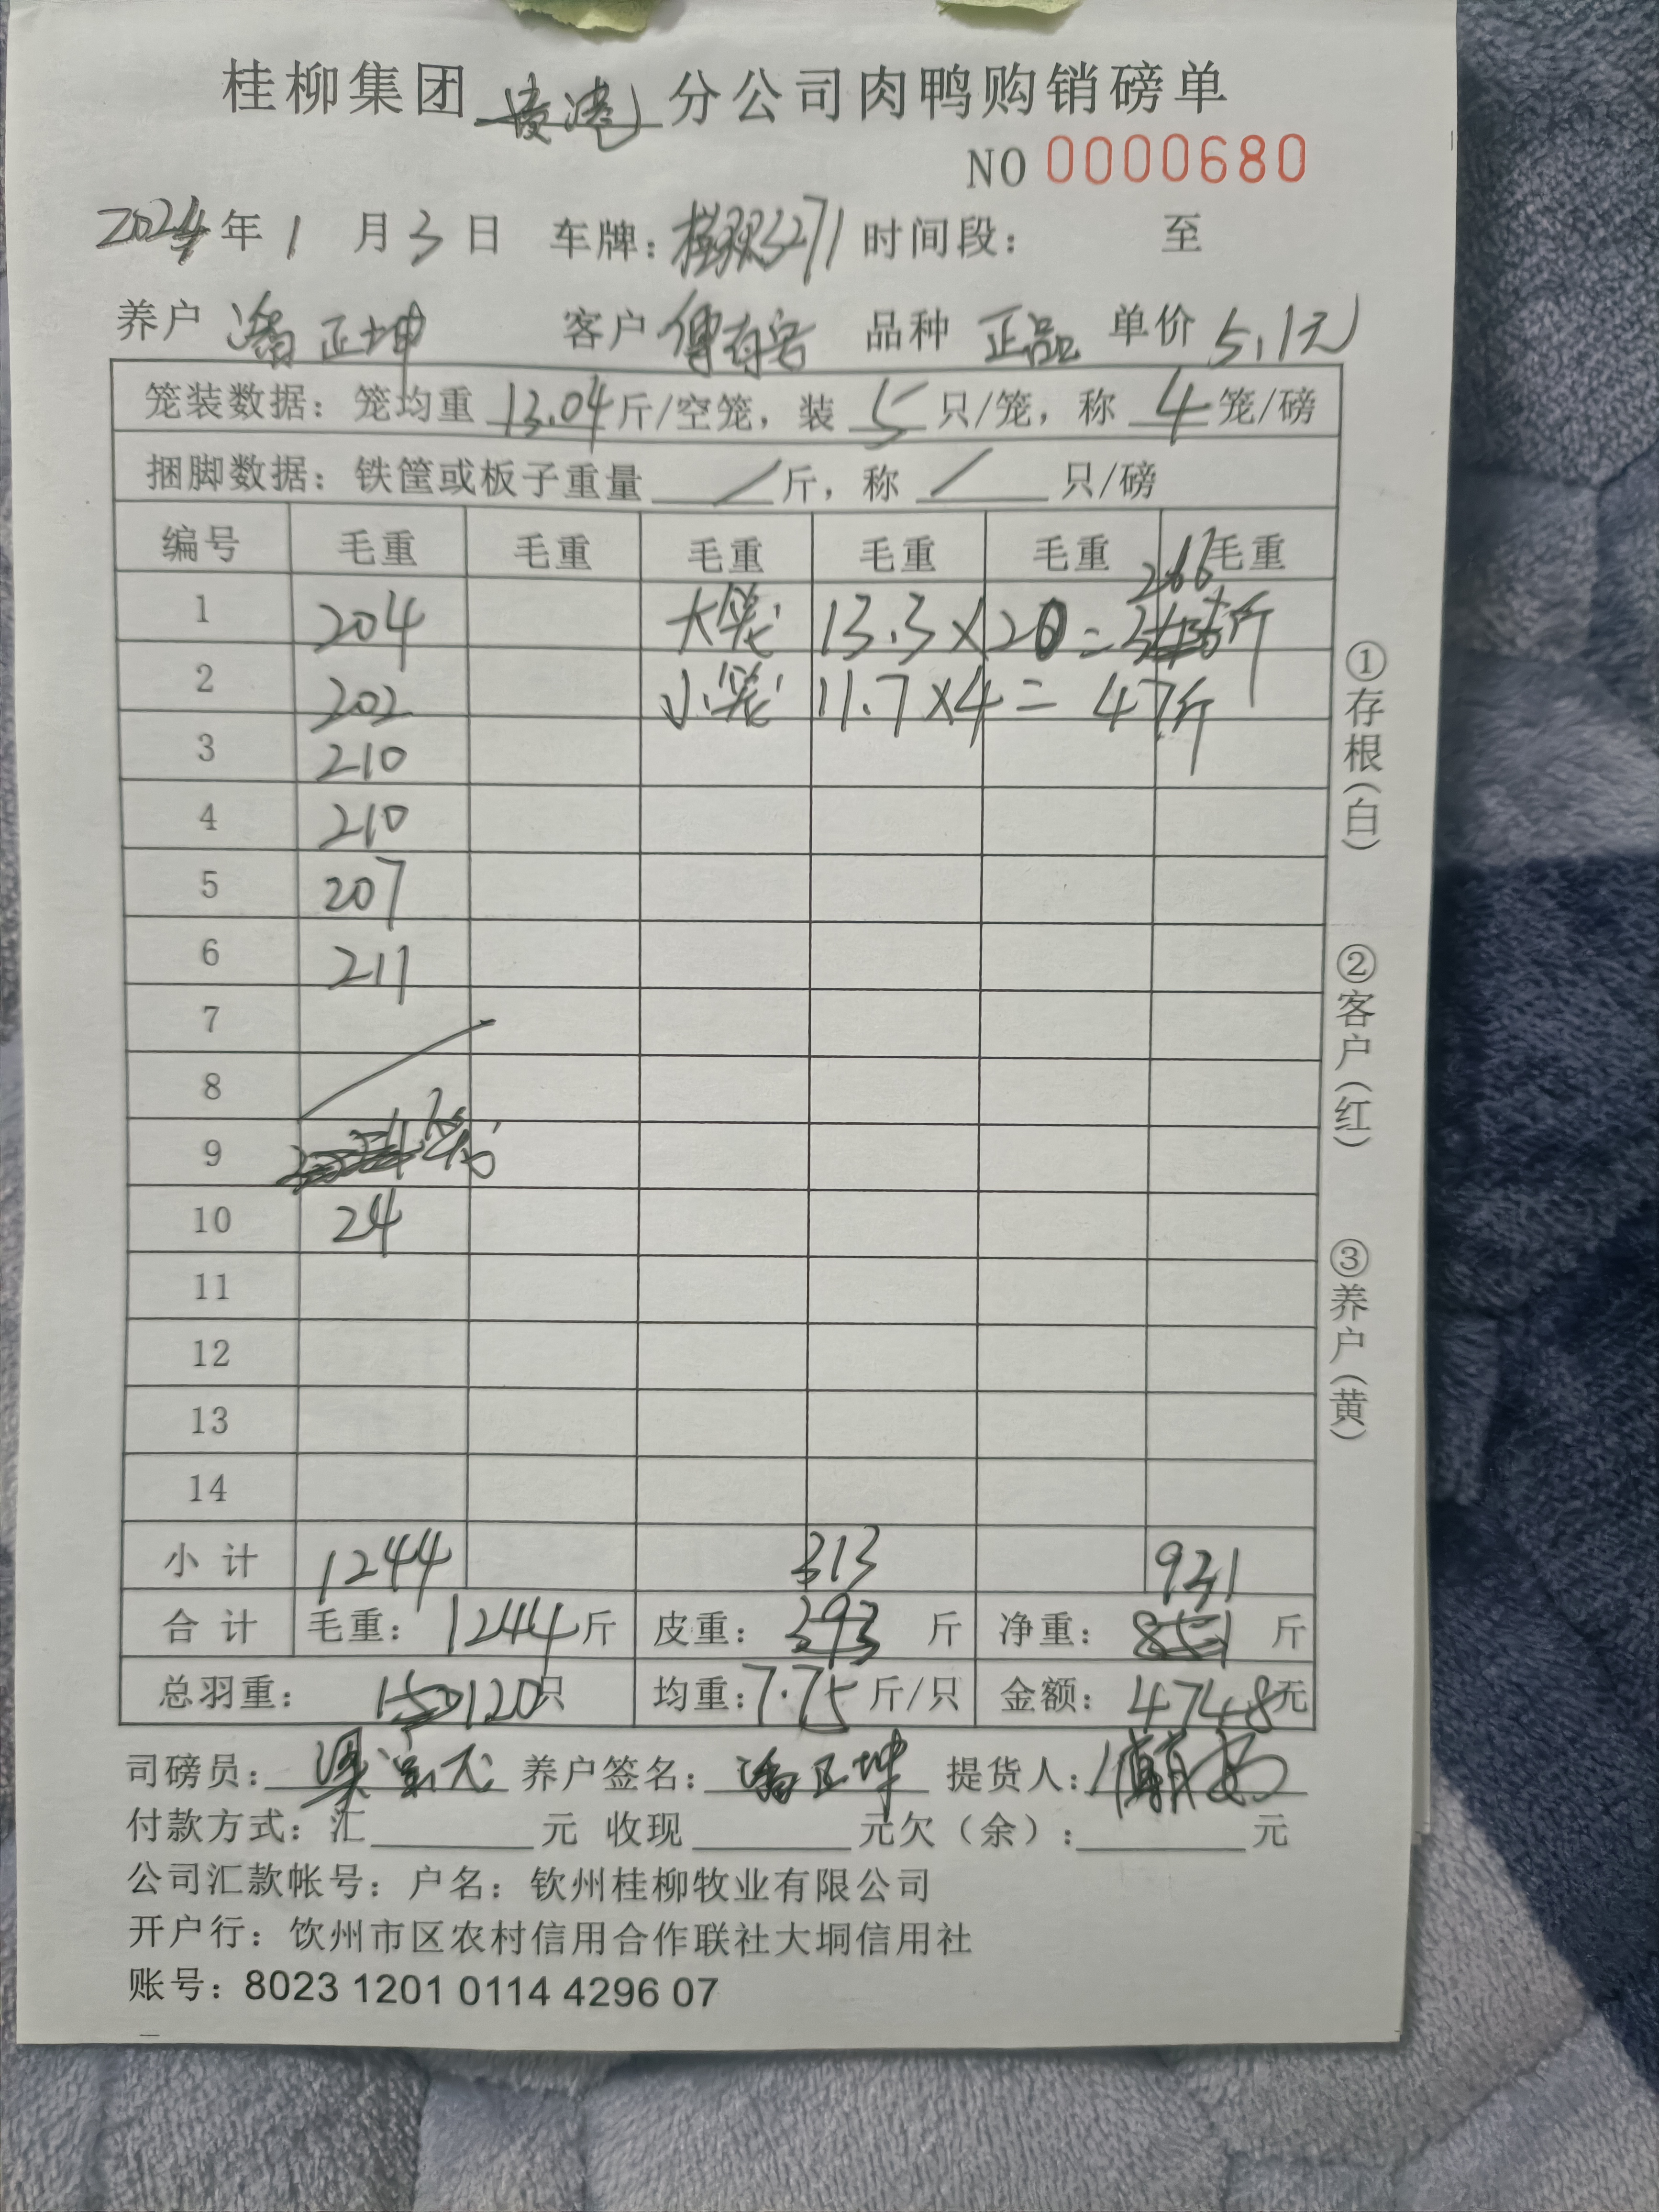 桂柳集团 贵港 分公司肉鸭购销磅单
NO 0000680
2024 年 1 月 3 日 车牌: 3271 时间段: 至
养户 潘正坤 客户 傅 品种 正品 单价 5.1元
笼装数据: 笼均重 13.04 斤/空笼, 装 5 只/笼, 称 4 笼/磅
捆脚数据: 铁筐或板子重量 / 斤, 称 / 只/磅
编号 毛重 毛重 毛重 毛重 毛重 毛重
266
1 204 大笼 13.3×20= 斤
2 202 小笼 11.7×4= 47斤
3 210
4 210
5 207
6 211
7
8
9
10 24
11
12
13
14
小 计 1244 313 931
合 计 毛重: 1244 斤 皮重: 393 斤 净重: 851 斤
总羽重: 150 120 只 均重: 7.75 斤/只 金额: 4748 元
司磅员: 养户签名: 潘正坤 提货人:
付款方式: 汇 元 收现 元欠(余): 元
公司汇款帐号: 户名: 钦州桂柳牧业有限公司
开户行: 饮州市区农村信用合作联社大垌信用社
账号: 8023 1201 0114 4296 07
①存根(白)
②客户(红)
③养户(黄)